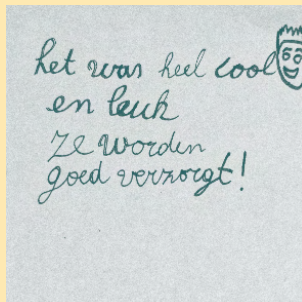 het was heel cool
en leuk
ze worden
goed verzorgt!